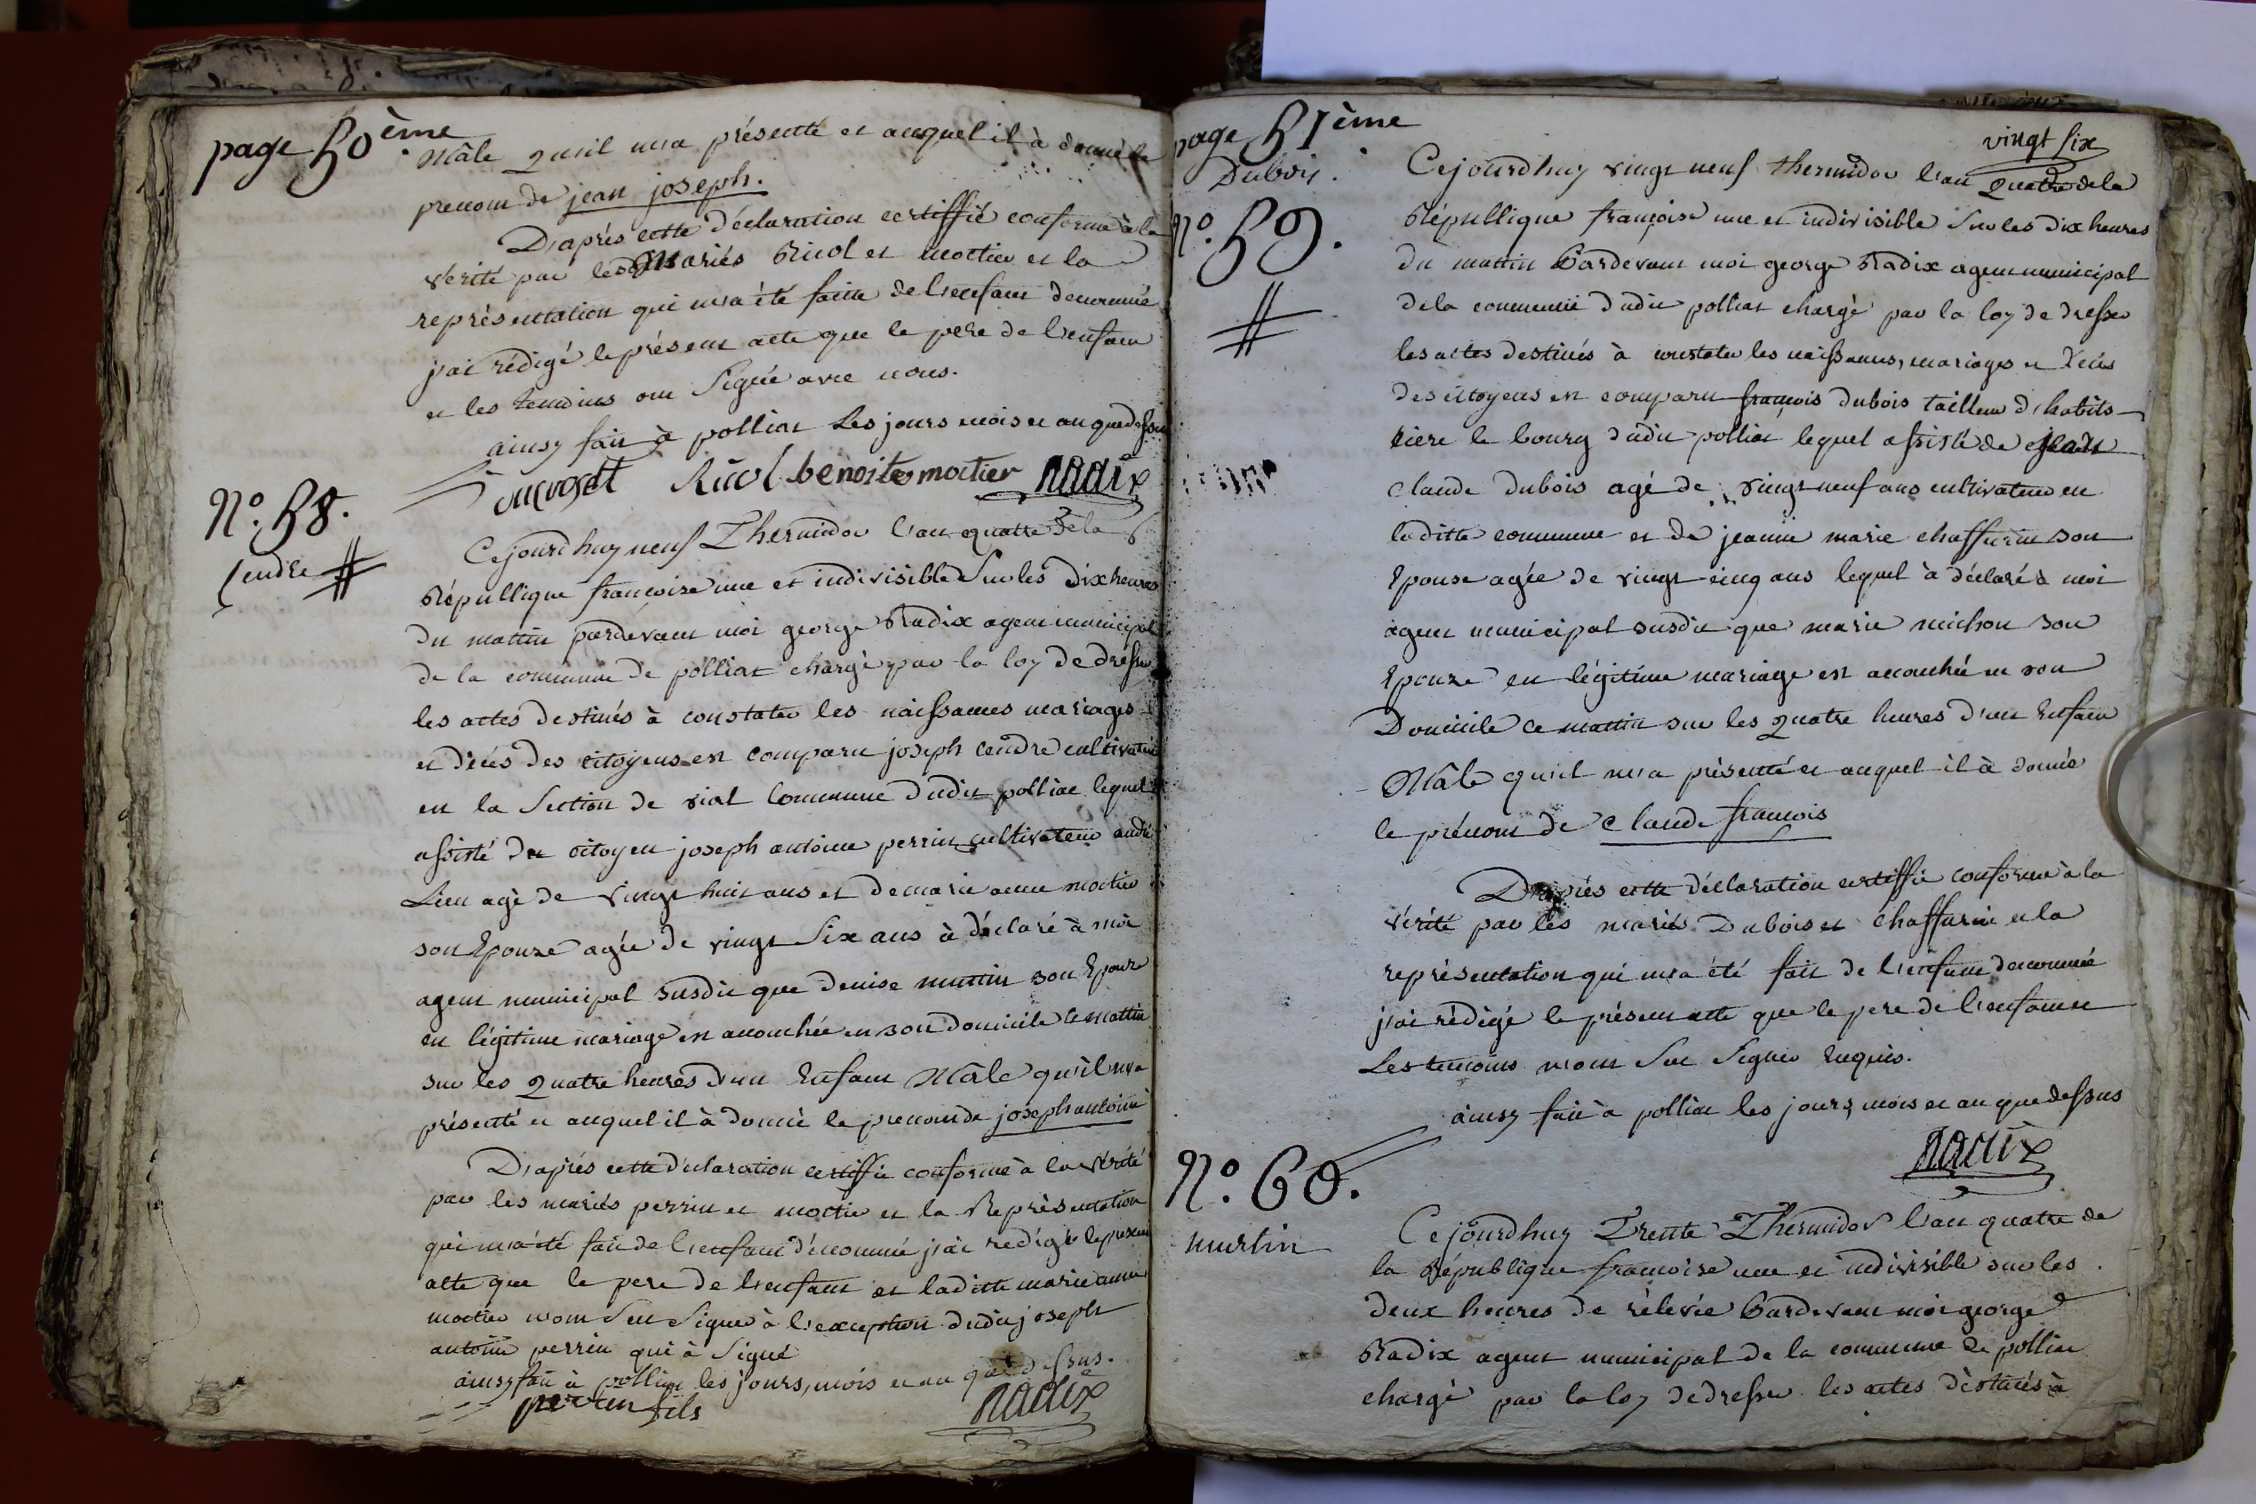 page 50ème
Mâle qu'il m'a présenté et auquel il à donné le
prenom de jean joseph.
D'après cette déclaration certiffié conforme à la
vérité par les Mariés Ricol et moctier et la
représentation qui m'a été faitte de l'enfant denommé
j'ai rédigé le présent acte que le pere de l'enfant
et les temoins ont Signé avec nous.
ainsy fait à polliat les jours mois et an que dessus
Ricol benoite moctier Radix
N.º 58.
Cendre
Cejourdhuy neuf Thermidor l'an quatre de la
République françoise une et indivisible Sur les dix heures
du mattin pardevant moi george Radix agent municipal
de la commune de polliat chargé par la loy de dresser
les actes destinés à constater les naissances mariages
et décés des citoyens est comparu joseph cendre cultivateur
en la Section de vial Commune dudit polliat lequel
assisté du citoyen joseph antoine perrin cultivateur audit
Lieu agé de vingt huit ans et de marie anne moctier
son Epouze agée de vingt Six ans à déclaré à moi
agent municipal susdit que denise muttin son Epouze
en légitime mariage est accouchée en son domicile ce mattin
sur les quatre heures d'un Enfant Mâle qu'il m'a
présenté et auquel il à donné le prenom de joseph antoine
D'après cette déclaration certiffié conforme à la vérité
par les mariés perrin et moctier et la Représentation
qui m'a été fait de l'enfant dénommé j'ai rédigé le present
acte que le pere de l'enfant et laditte marie anne
moctier n'ont Sçu Signer à l'exception dudit joseph
antoine perrin qui à Signé
ainsy fait à polliat les jours, mois et an que dessus.
perrin fils Radix
page 51ème
vingt six
Dubois.
N.º 59.
Cejourdhuy vingt neuf thermidor l'an quatre de la
République françoise une et indivisible Sur les dix heures
du mattin Pardevant moi george Radix agent municipal
de la commune dudit polliat chargé par la loy de dresser
les actes destinés à constater les naissances, mariages et décés
des citoyens est comparu françois dubois tailleur d'habits
rière le bourg dudit polliat lequel assisté de jean
claude dubois agé de vingt neuf ans cultivateur en
laditte commune et de jeanne marie chaffurin son
Epouse agée de vingt cinq ans lequel à déclaré à moi
agent municipal susdit que marie michon son
Epouze en légitime mariage est accouchée en son
Domicile ce mattin sur les quatre heures d'un Enfant
Mâle qu'il m'a présenté et auquel il à donné
le prénom de claude françois
D'après cette déclaration certiffié conforme à la
vérité par les mariés Dubois et chaffurin et la
représentation qui m'a été fait de l'enfant denommé
j'ai rédigé le présent acte que le pere de l'enfant et
Les temoins n'ont Sçu Signer Enquis.
ainsy fait à polliat les jours, mois et an que dessus
Radix
N.º 60.
murtin
Cejourdhuy Trente Thermidor l'an quatre de
la République françoise une et indivisible sur les
deux heures de rélevée Pardevant moi george
Radix agent municipal de la commune de polliat
chargé par la loy de dresser les actes déstinés à